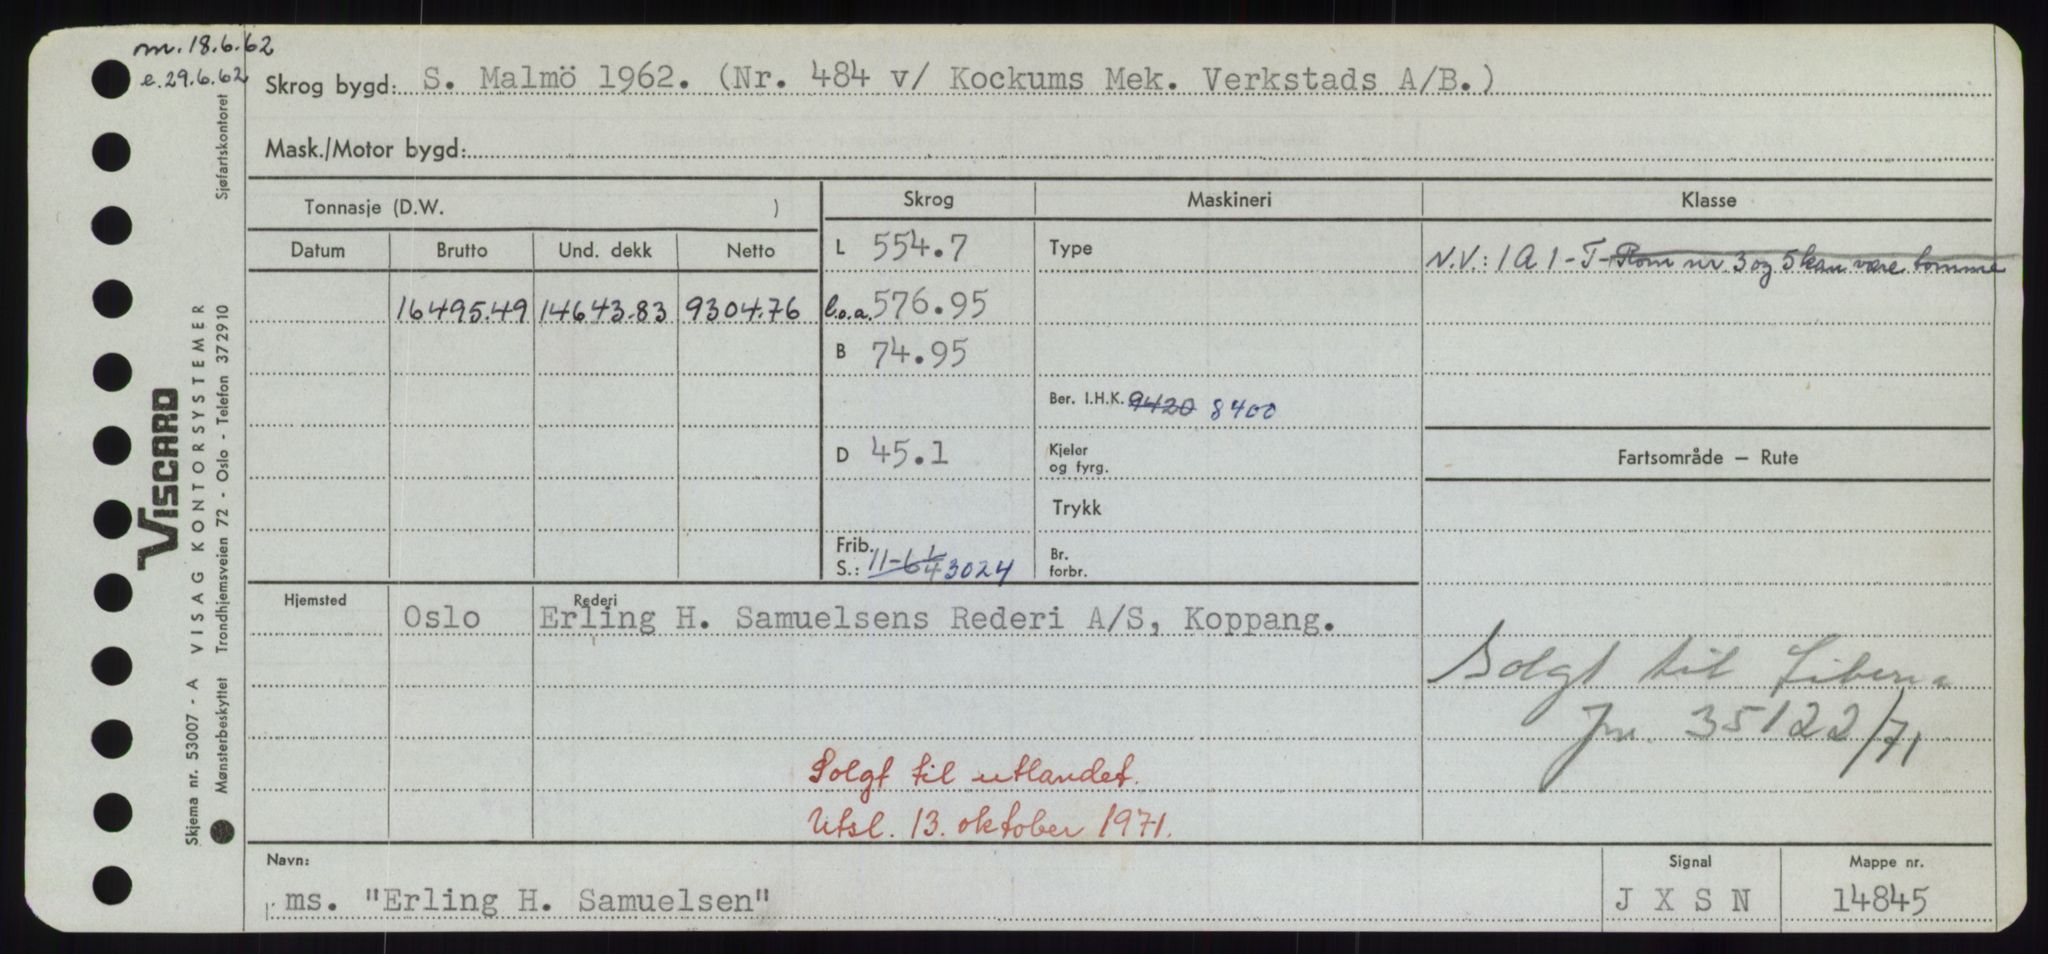 m. 18.6.62
e. 29.6.62
Skrog bygd: S. Malmö 1962. (Nr. 484 v/ Kockums Mek. Verkstads A/B.)
Mask./Motor bygd:
Tonnasje (D.W. )
Skrog
Maskineri
Klasse
Datum
Brutto
Und. dekk
Netto
L 554.7
Type
N.V.: 1 A 1 - T - Rom nr 3 og 5 kan være tomme
16495.49 14643.83 9304.76
l.o.a. 576.95
B 74.95
Ber. I.H.K. 9420 8400
D 45.1
Kjeler
og fyrg.
Fartsområde — Rute
Trykk
Frib.
S.: 11-6 1/4 3024
Br.
forbr.
Hjemsted
Rederi
Oslo
Erling H. Samuelsens Rederi A/S, Koppang.
Solgt til Liberia
Jnr. 35122/71
Solgt til utlandet.
Utsl. 13. oktober 1971.
Navn:
ms. "Erling H. Samuelsen"
Signal
J X S N
Mappe nr.
14845
VISCARD
Skjema nr. 53007 - A VISAG KONTORSYSTEMER
Mønsterbeskyttet Trondhjemsveien 72 - Oslo - Telefon 372910
Sjøfartskontoret